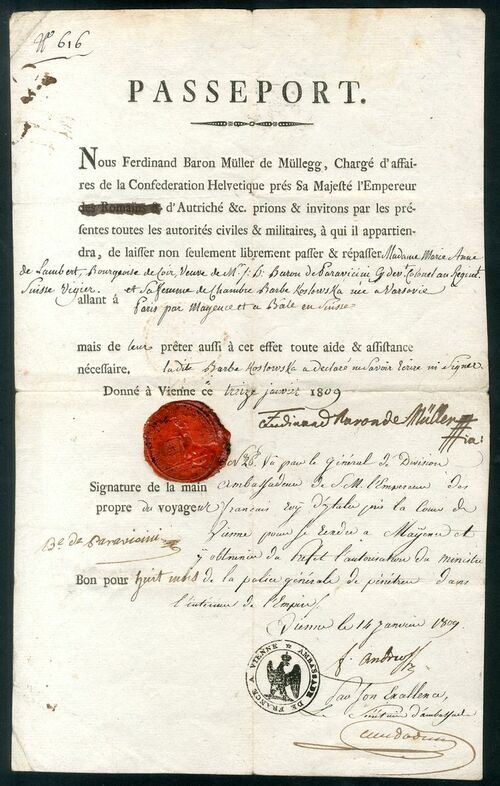 Nº 616
PASSEPORT.
Nous Ferdinand Baron Müller de Müllegg, Chargé d'affai-
res de la Confederation Helvetique prés Sa Majesté l'Empereur
des Romains & d'Autriché &c. prions & invitons par les pré-
sentes toutes les autorités civiles & militaires, à qui il appartien-
dra, de laisser non seulement librement passer & répasser Madame Marie Anne
de Lambert, Bourgeoise de Coir, Veuve de Mr. Baron de Paravicini Colonel au Regint.
Suisse Vigier. et sa femme de Chambre Barbe Koslowska née a Varsovie
allant á Paris par Mayence et a Bâle en Suisse
mais de leur prêter aussi à cet effet toute aide & assistance
nécessaire, ladite Barbe Koslowska a declaré ne savoir Ecrire ni Signer
Donné à Vienne ce treize janvier 1809
Ferdinand Baron de Müller
Vu par le général de Division
Signature de la main
Ambassadeur de S. M. l'Empereur des
propre du voyageur
français roy d'italie près la Cour de
Vienne pour se rendre a Mayence et
Be. de Paravicini
y obtenir du l'autorisation du ministre
Bon pour huit mois
de la police générale de pénétrer dans
l'intérieur de l'Empire.
Vienne le 14 janvier 1809.
f. andreossy
Par Son Excellence,
Secrétaire d'ambassade
AMBASSADE DE FRANCE A VIENNE